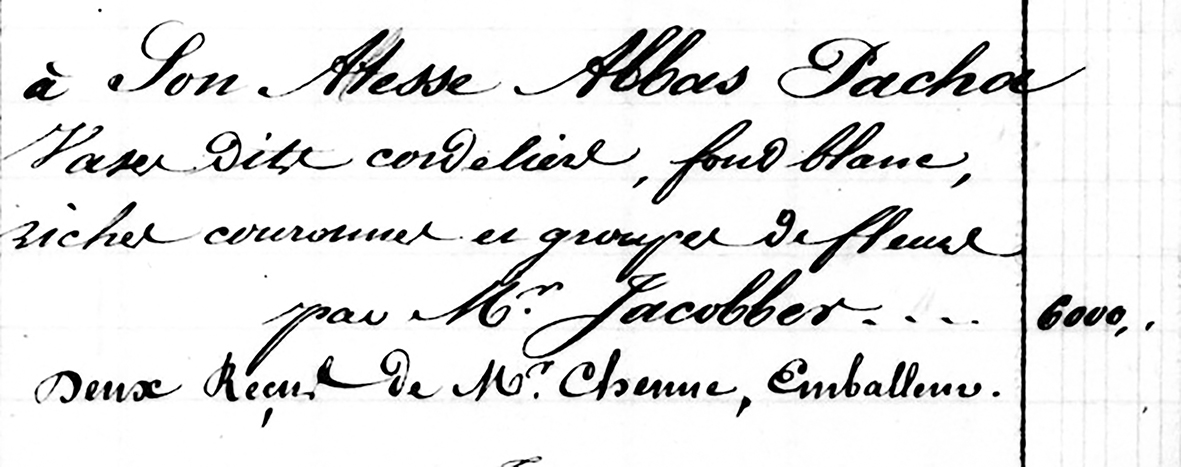 à Son Altesse Abbas Pacha
Vases dits cordelière, fond blanc,
riches couronnes et groupes de fleurs
par Mr. Jacobber .... 6000,.
Deux Reçus de Mr. Chenue, Emballeur.